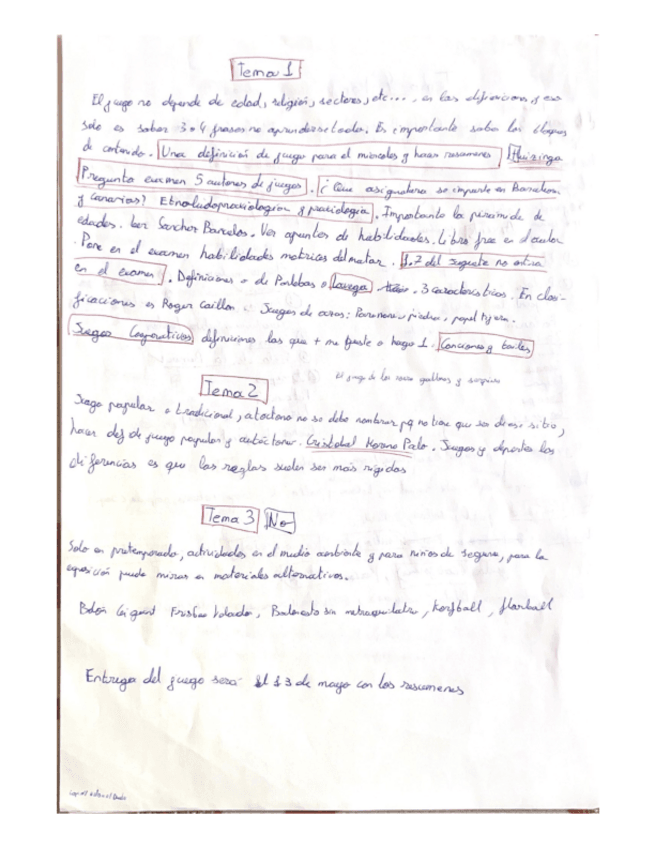 Tema 1
El juego no depende de edad, religión, sectores, etc..., en las definiciones y eso
solo es saber 3 o 4 frases no aprenderselo todo. Es importante saber los bloques
de contenido. Una definición de juego para el miercoles y hacer resumenes Huizinga
Pregunta examen 5 autores de juegos. ¿Que asignatura se imparte en Barcelona
y canarias? Etnoludopraxiologia y praxiologia. Importante la piramide de
edades. Leer Sanchez Bañuelos. Ver apuntes de habilidades. Libro free en el autor
. Pone en el examen habilidades motrices del matar. 1.7 del juguete no entra
en el examen. Definiciones o de Parlebas o Lavega. 3 caracteristicas. En clasi-
ficaciones es Roger Caillois. Juegos de azar: piedra, papel tijera.
Juegos Cooperativos definiciones las que + me guste o hago 1. Canciones y bailes
El juego de los
Tema 2
Juego popular o tradicional, autoctono no se debe nombrar pq no tiene que ser de ese sitio,
hacer def de juego popular y autóctono. Cristobal Moreno Palo. Juegos y deportes las
diferencias es que las reglas suelen ser más rigidas
Tema 3 No
Solo en pretemporada, actividades en el medio ambiente y para niños de segura, para la
exposición puede mirar en materiales alternativos.
Balón Gigant Frisbee Volador, Baloncesto sin, Korfball, floorball
Entrega del juego sera El 13 de mayo con los resumenes